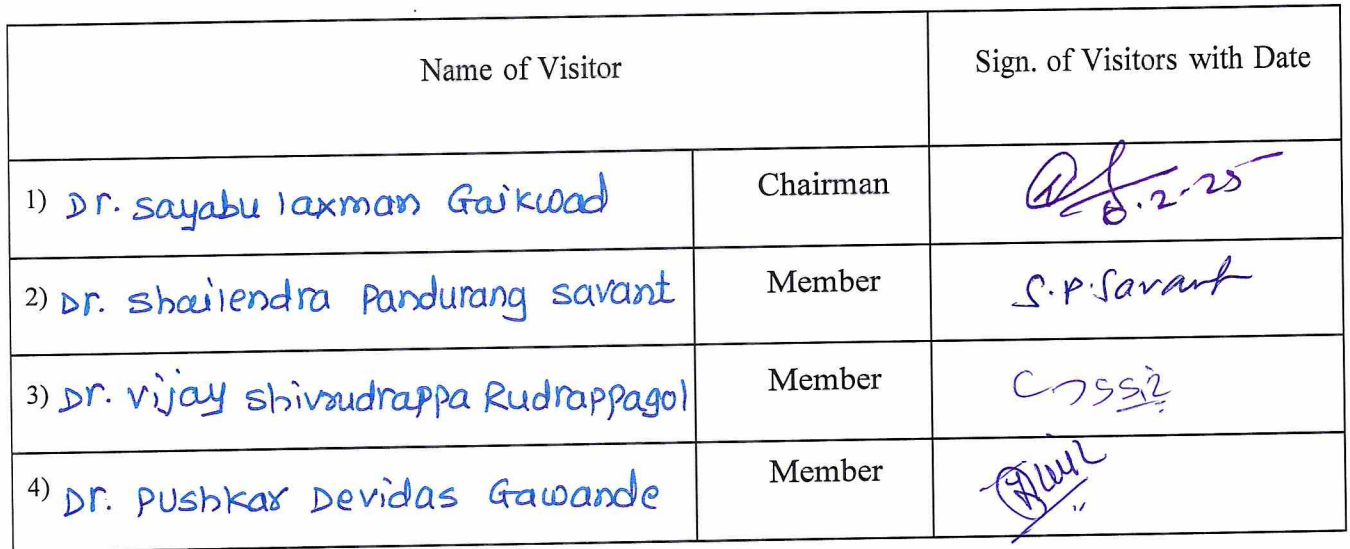 Name of Visitor Sign. of Visitors with Date
1) Dr. sayabu laxman Gaikwad Chairman
2) Dr. Shailendra Pandurang savant Member S.P.Savant
3) Dr. vijay shivrudrappa Rudrappagol Member
4) Dr. Pushkar Devidas Gawande Member